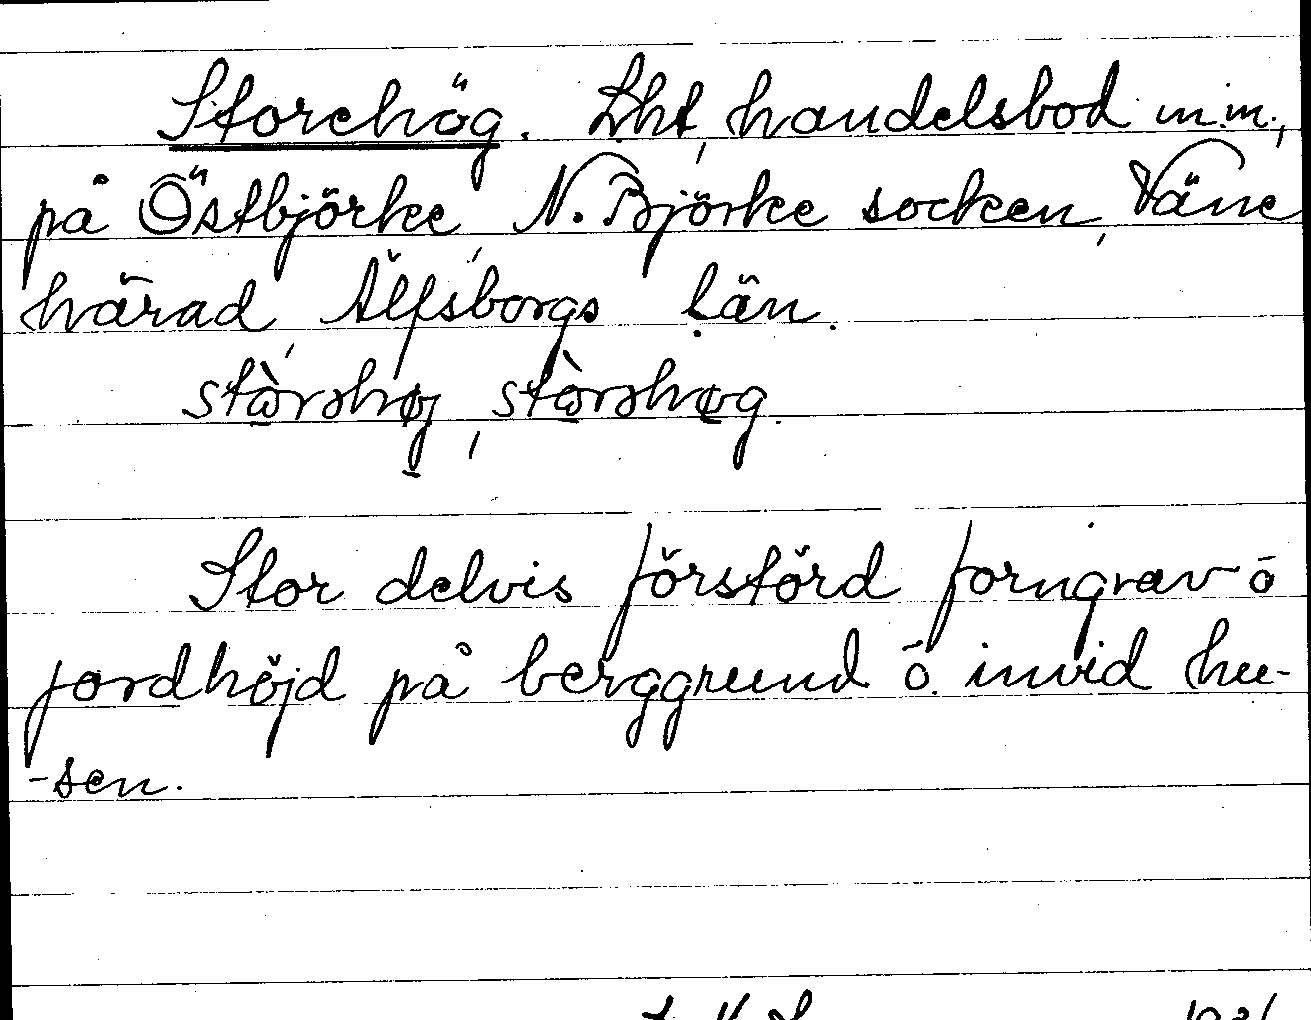 Storehög. Lht, handelsbod m.m.,
på Östbjörke, N. Björke socken, Väne
härad, Älfsborgs län.
stòrəhøj, stòrəhøg.
Stor delvis förstörd forngrav å
jordhöjd på berggrund å invid hu-
-sen.